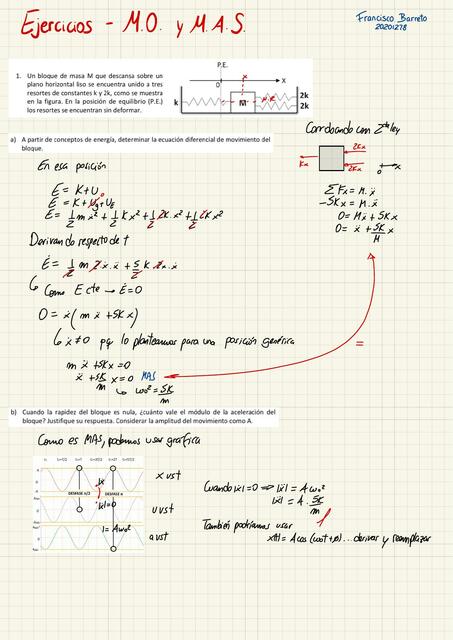 Ejercicios - M.O. y M.A.S.
Francisco Barreto
20201278
1. Un bloque de masa M que descansa sobre un
plano horizontal liso se encuentra unido a tres
resortes de constantes k y 2k, como se muestra
en la figura. En la posición de equilibrio (P.E.)
los resortes se encuentran sin deformar.
P.E.
x
0
X
k
M
2k
2k
a) A partir de conceptos de energía, determinar la ecuación diferencial de movimiento del
bloque.
Corroborando con 2da ley
2Kx
Kx
2Kx
ΣFx = M.ẍ
-5Kx = M.ẍ
0 = Mẍ + 5Kx
0 = ẍ + 5K/M x
En esa posición
E = K + U
E = K + Ug + UE
E = 1/2 m ẋ² + 1/2 Kx² + 1/2 2K.x² + 1/2 2Kx²
Derivando respecto de t
Ė = 1/2 m 2ẋ.ẍ + 5/2 K 2x.ẋ
Como E cte → Ė = 0
0 = ẋ(mẍ + 5Kx)
ẋ ≠ 0 pq lo planteamos para una posición genérica
=
mẍ + 5Kx = 0
ẍ + 5K/m x = 0 MAS
ωo² = 5K/m
b) Cuando la rapidez del bloque es nula, ¿cuánto vale el módulo de la aceleración del
bloque? Justifique su respuesta. Considerar la amplitud del movimiento como A.
Como es MAS, podemos usar gráfica
DESFASE π/2
DESFASE π
|ẋ|=0
|= Aωo²
x vs t
v vs t
a vs t
Cuando |ẋ|=0 ⇒ |ẍ| = Aωo²
|ẍ| = A . 5K/m
También podríamos usar
x(t) = A cos(ωot+ø) ... derivar y reemplazar